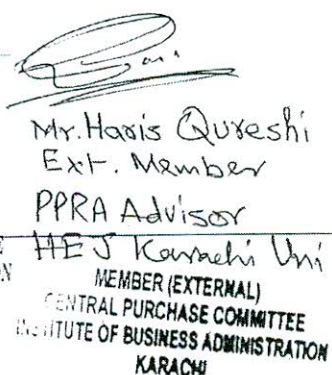 Mr. Haris Qureshi
Ext. Member
PPRA Advisor
HEJ Karachi Uni
MEMBER (EXTERNAL)
CENTRAL PURCHASE COMMITTEE
INSTITUTE OF BUSINESS ADMINISTRATION
KARACHI